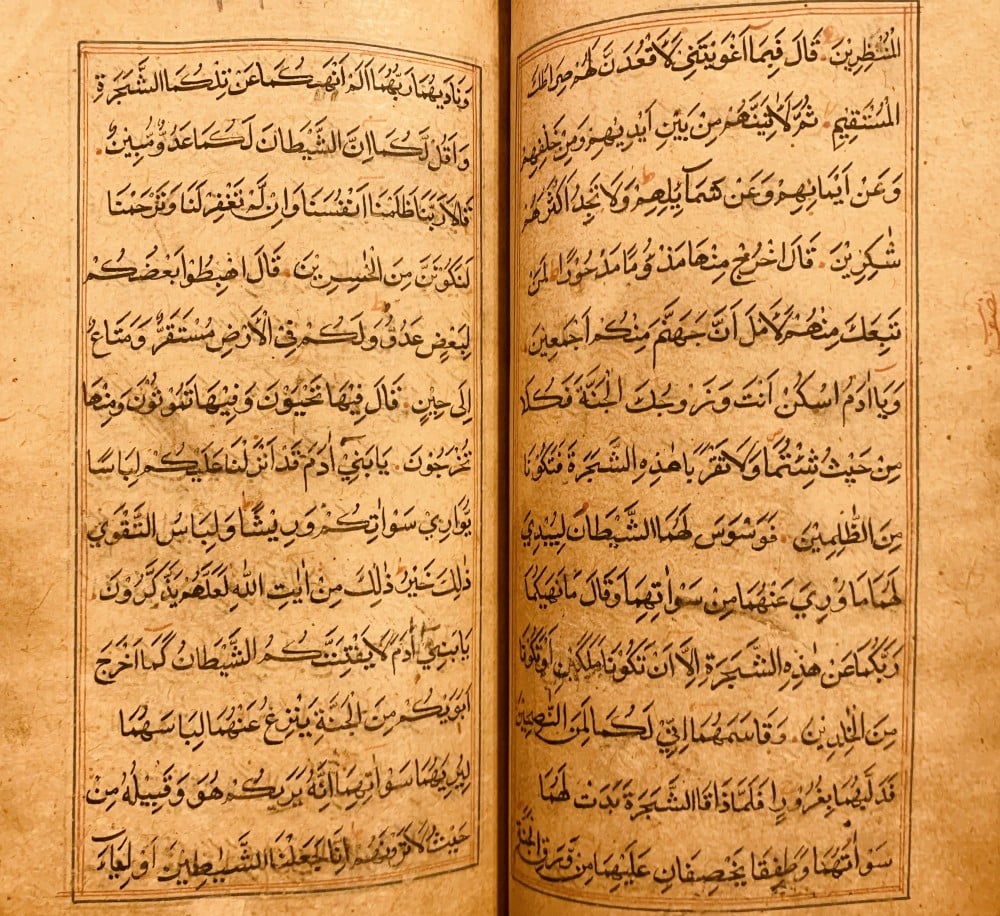 الْمُنْظَرِيْنَ قَالَ فَبِمَا اَغْوَيْتَنِيْ لَاَقْعُدَنَّ لَهُمْ صِرَاطَكَ
الْمُسْتَقِيْمِ ثُمَّ لَاٰتِيَنَّهُمْ مِنْ بَيْنِ اَيْدِيْهِمْ وَمِنْ خَلْفِهِمْ
وَعَنْ اَيْمَانِهِمْ وَعَنْ شَمَآئِلِهِمْ وَلَا تَجِدُ اَكْثَرَهُمْ
شٰكِرِيْنَ قَالَ اخْرُجْ مِنْهَا مَذْءُوْمًا مَدْحُوْرًا لَمَنْ
تَبِعَكَ مِنْهُمْ لَاَمْلَـَٔنَّ جَهَنَّمَ مِنْكُمْ اَجْمَعِيْنَ
وَيَا اٰدَمُ اسْكُنْ اَنْتَ وَزَوْجُكَ الْجَنَّةَ فَكُلَا
مِنْ حَيْثُ شِئْتُمَا وَلَا تَقْرَبَا هٰذِهِ الشَّجَرَةَ فَتَكُوْنَا
مِنَ الظّٰلِمِيْنَ فَوَسْوَسَ لَهُمَا الشَّيْطَانُ لِيُبْدِيَ
لَهُمَا مَا وُرِيَ عَنْهُمَا مِنْ سَوْاٰتِهِمَا وَقَالَ مَا نَهٰيكُمَا
رَبُّكُمَا عَنْ هٰذِهِ الشَّجَرَةِ اِلَّا اَنْ تَكُوْنَا مَلَكَيْنِ اَوْ تَكُوْنَا
مِنَ الْخٰلِدِيْنَ وَقَاسَمَهُمَا اِنِّيْ لَكُمَا لَمِنَ النّٰصِحِيْنَ
فَدَلّٰيهُمَا بِغُرُوْرٍ فَلَمَّا ذَاقَا الشَّجَرَةَ بَدَتْ لَهُمَا
سَوْاٰتُهُمَا وَطَفِقَا يَخْصِفَانِ عَلَيْهِمَا مِنْ وَرَقِ الْجَنَّةِ
وَنَادٰيهُمَا رَبُّهُمَا اَلَمْ اَنْهَكُمَا عَنْ تِلْكُمَا الشَّجَرَةِ
وَاَقُلْ لَكُمَا اِنَّ الشَّيْطَانَ لَكُمَا عَدُوٌّ مُّبِيْنٌ
قَالَا رَبَّنَا ظَلَمْنَا اَنْفُسَنَا وَاِنْ لَمْ تَغْفِرْ لَنَا وَتَرْحَمْنَا
لَنَكُوْنَنَّ مِنَ الْخٰسِرِيْنَ قَالَ اهْبِطُوْا بَعْضُكُمْ
لِبَعْضٍ عَدُوٌّ وَلَكُمْ فِي الْاَرْضِ مُسْتَقَرٌّ وَمَتَاعٌ
اِلٰى حِيْنٍ قَالَ فِيْهَا تَحْيَوْنَ وَفِيْهَا تَمُوْتُوْنَ وَمِنْهَا
تُخْرَجُوْنَ يَابَنِيْ اٰدَمَ قَدْ اَنْزَلْنَا عَلَيْكُمْ لِبَاسًا
يُوَارِيْ سَوْاٰتِكُمْ وَرِيْشًا وَلِبَاسُ التَّقْوٰي
ذٰلِكَ خَيْرٌ ذٰلِكَ مِنْ اٰيٰتِ اللهِ لَعَلَّهُمْ يَذَّكَّرُوْنَ
يَابَنِيْ اٰدَمَ لَا يَفْتِنَنَّكُمُ الشَّيْطَانُ كَمَا اَخْرَجَ
اَبَوَيْكُمْ مِنَ الْجَنَّةِ يَنْزِعُ عَنْهُمَا لِبَاسَهُمَا
لِيُرِيَهُمَا سَوْاٰتِهِمَا اِنَّهُ يَرٰيكُمْ هُوَ وَقَبِيْلُهُ مِنْ
حَيْثُ لَا تَرَوْنَهُمْ اِنَّا جَعَلْنَا الشَّيٰطِيْنَ اَوْلِيَاءَ